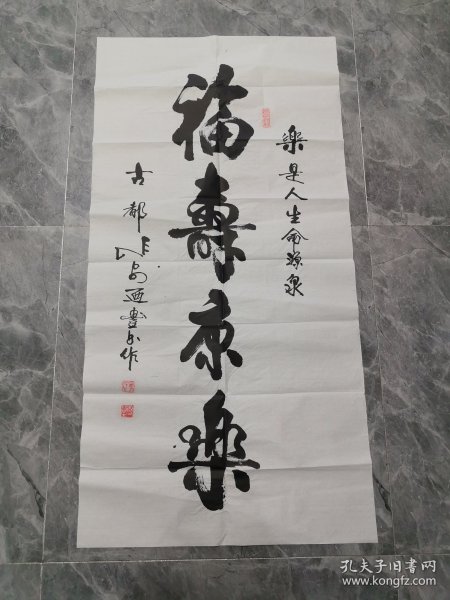 樂是人生命源泉
福壽康樂
古都長安迺書田作
孔夫子旧书网
www.kongfz.com